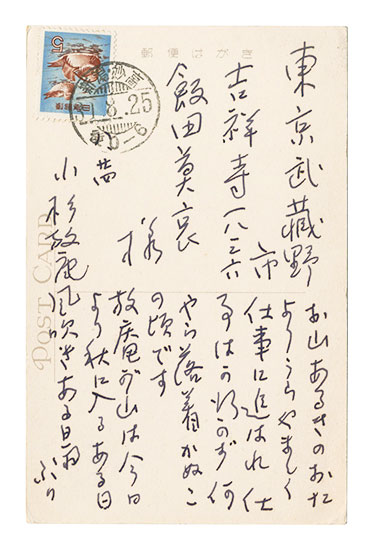 郵便はがき
東京武藏野
市
吉祥寺一八三六
飯田莫哀
様
お山あるきのおた
よりうらやましく
仕事に追はれ仕
事は 何
やら落着かぬこ
の頃です
放庵が山は今日
より秋に入るある日
風吹きある日雨
ふり
小杉放庵
廿四
8.25
5
POST CARD